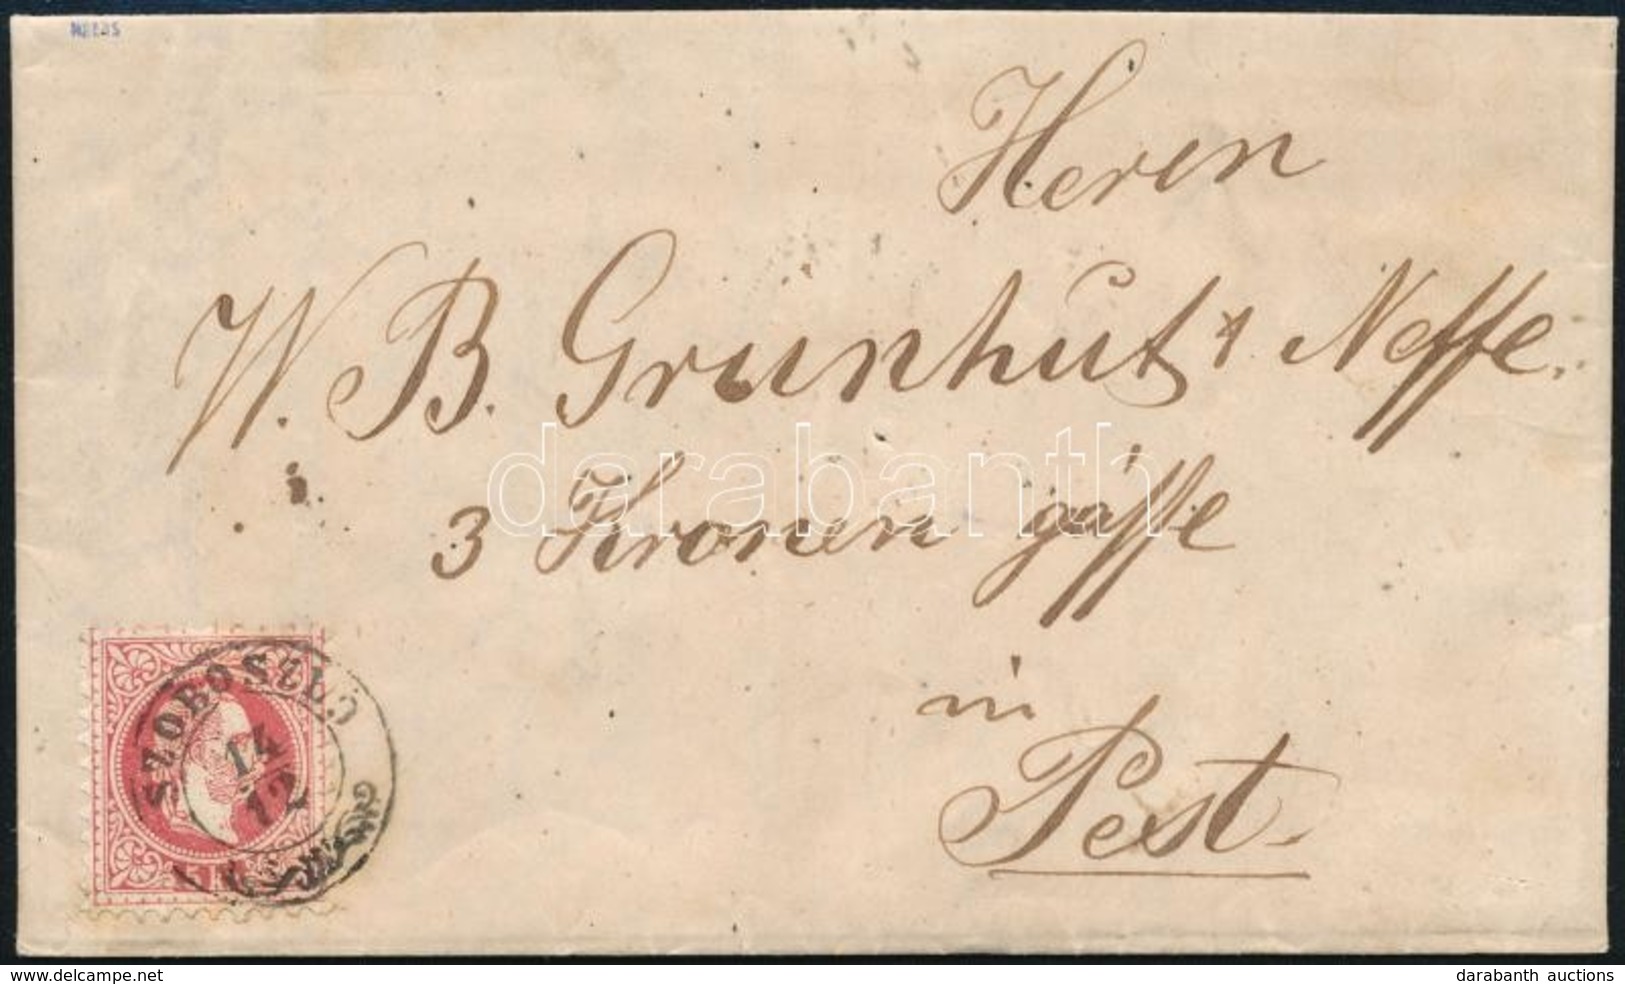 MEEBS
Herrn
W. B. Grünhut & Neffe.
darabanth
3 Kronen gásse
in
Pest.
SZOBOSZLÓ
14
12
www.delcampe.net
darabanth auctions